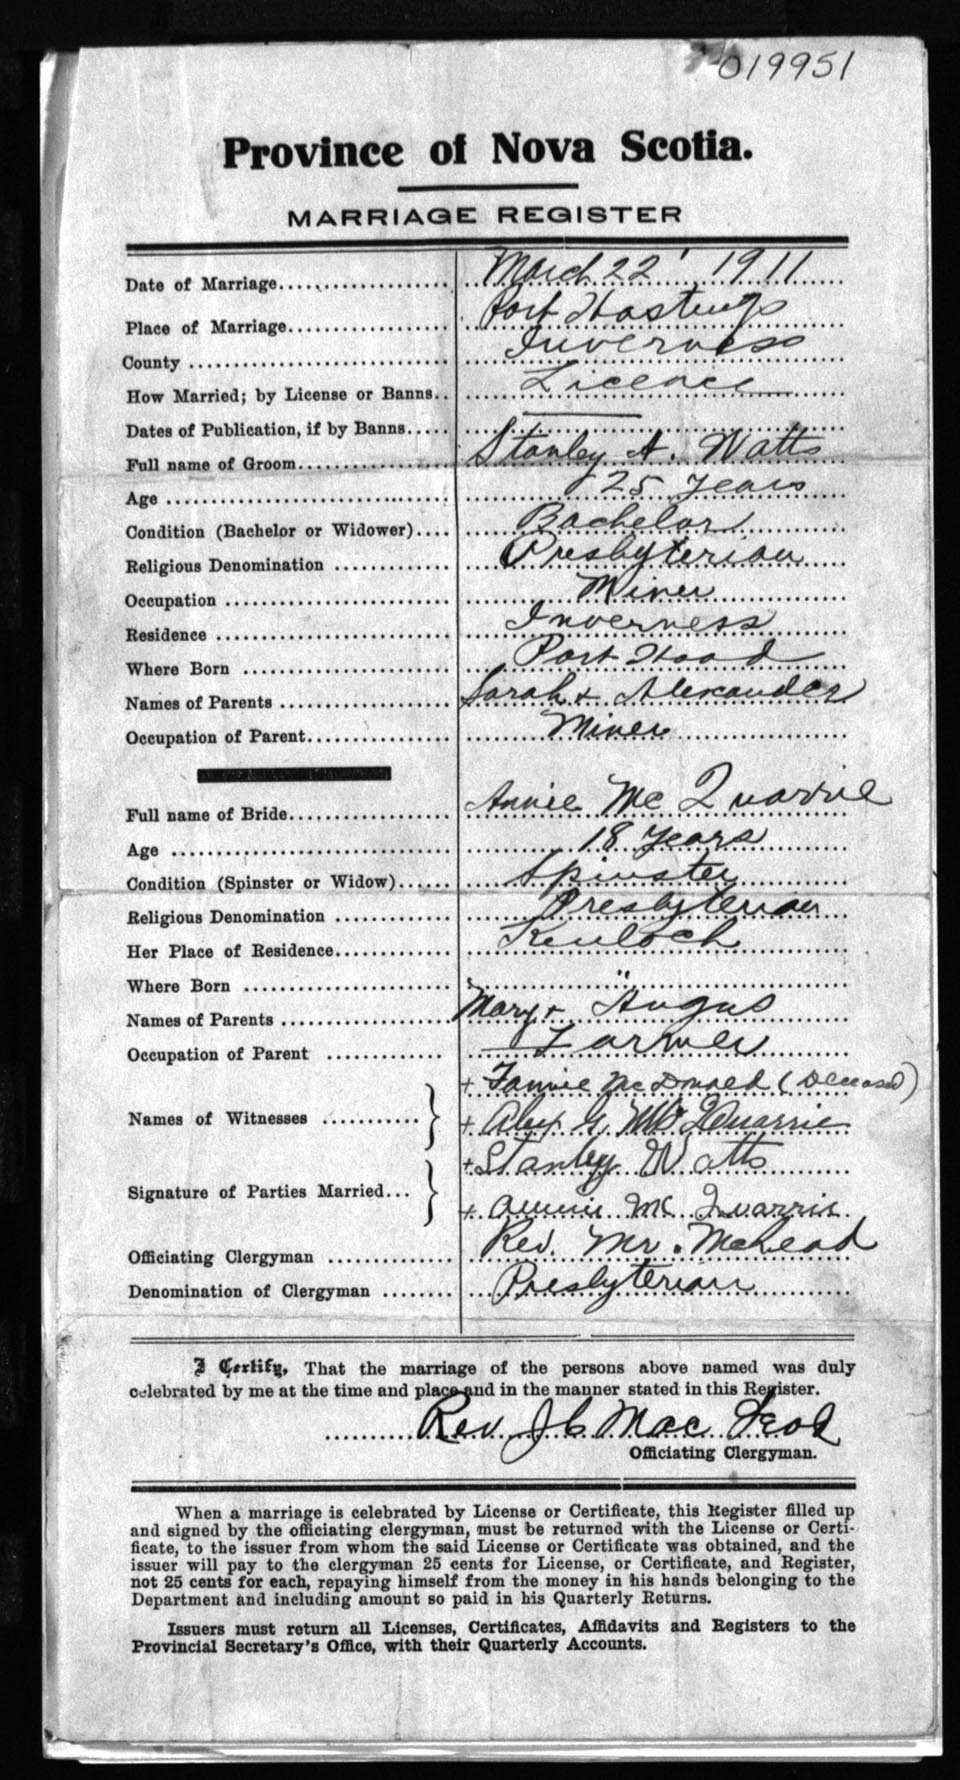 019951
Province of Nova Scotia.
MARRIAGE REGISTER
Date of Marriage.................... March 22' 1911
Place of Marriage.................. Port Hastings
County ............................ Inverness
How Married; by License or Banns.. Licence
Dates of Publication, if by Banns..... ———
Full name of Groom................. Stanley A. Watts
Age ............................... 25 years
Condition (Bachelor or Widower).... Bachelor
Religious Denomination ............ Presbyterian
Occupation ........................ Miner
Residence ......................... Inverness
Where Born ........................ Port Hood
Names of Parents .................. Sarah + Alexander
Occupation of Parent............... Miner
Full name of Bride................. Annie Mc Quarrie
Age ............................... 18 years
Condition (Spinster or Widow)...... Spinster
Religious Denomination ............ Presbyterian
Her Place of Residence............. Kenloch
Where Born ........................ "
Names of Parents .................. Mary + Angus
Occupation of Parent ............. Farmer
+ Fannie McDonald (Deceased)
Names of Witnesses ........... + Alex G. McQuarrie
+ Stanley Watts
Signature of Parties Married...
+ Annie Mc Quarrie
Officiating Clergyman ............. Rev. Mr. McLeod
Denomination of Clergyman ........ Presbyterian
I Certify, That the marriage of the persons above named was duly
celebrated by me at the time and place and in the manner stated in this Register.
Rev J C Mac Leod
Officiating Clergyman.
When a marriage is celebrated by License or Certificate, this Register filled up
and signed by the officiating clergyman, must be returned with the License or Certi-
ficate, to the issuer from whom the said License or Certificate was obtained, and the
issuer will pay to the clergyman 25 cents for License, or Certificate, and Register,
not 25 cents for each, repaying himself from the money in his hands belonging to the
Department and including amount so paid in his Quarterly Returns.
Issuers must return all Licenses, Certificates, Affidavits and Registers to the
Provincial Secretary's Office, with their Quarterly Accounts.